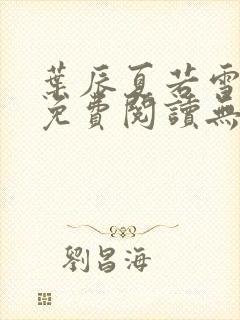 葉辰夏若雪
免費閱讀無
劉昌海